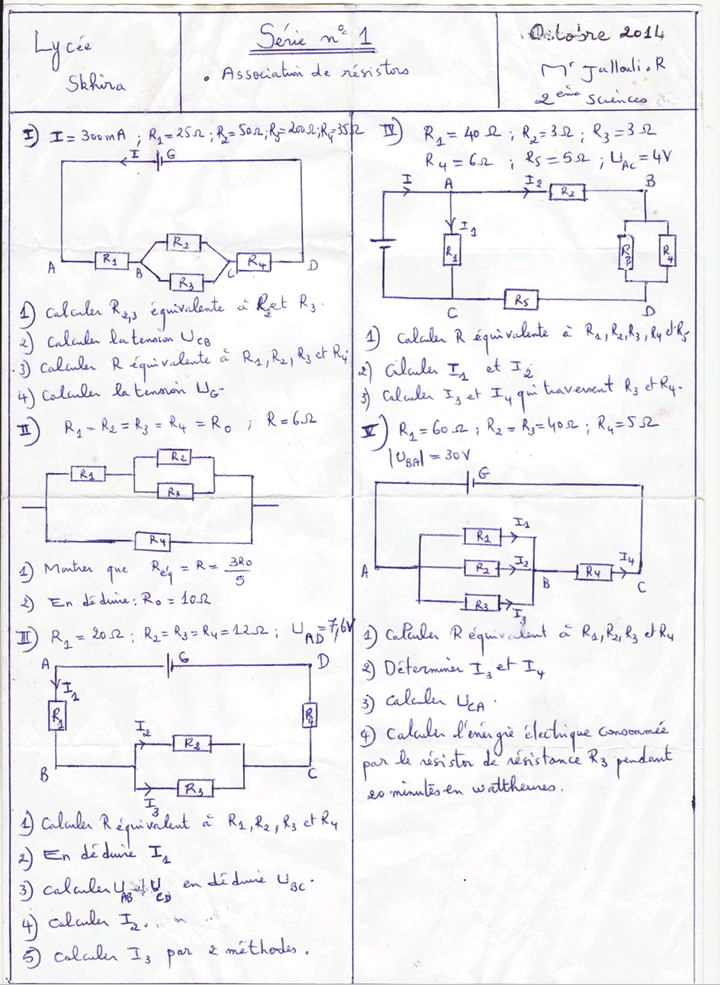 Lycée
Skhira
Série n° 1
• Association de résistors
Octobre 2014
Mr Jallouli.R
2ème Sciences
I) I = 300mA ; R1 = 25Ω ; R2 = 50Ω ; R3 = 200Ω ; R4 = 35Ω
I
G
R2
R1
R3
R4
A
B
C
D
1) Calculer R2,3 équivalente à R2 et R3.
2) Calculer la tension UCB
3) Calculer R équivalente à R1, R2, R3 et R4
4) Calculer la tension UG.
II) R1 = R2 = R3 = R4 = R0 ; R = 6Ω
R2
R1
R3
R4
1) Montrer que Réq = R = 3R0/5
2) En déduire : R0 = 10Ω
III) R1 = 20Ω ; R2 = R3 = R4 = 12Ω ; UAD = 7,6V
A
G
D
I1
R1
I2
R2
B
C
R3
I3
1) Calculer R équivalent à R1, R2, R3 et R4
2) En déduire I1
3) calculer UAB et UCD en déduire UBC.
4) calculer I2.
5) calculer I3 par 2 méthodes.
IV) R1 = 40Ω ; R2 = 3Ω ; R3 = 3Ω
R4 = 6Ω ; R5 = 5Ω ; UAC = 4V
I
A
I2
R2
B
I1
R1
R3
R4
R5
C
D
1) Calculer R équivalente à R1, R2, R3, R4 et R5
2) Calculer I1 et I2
3) Calculer I3 et I4 qui traversent R3 et R4.
V) R1 = 60Ω ; R2 = R3 = 40Ω ; R4 = 5Ω
|UBA| = 30V
G
I1
R1
I2
R2
I4
A
B
R4
C
R3
I3
1) Calculer R équivalent à R1, R2, R3 et R4
2) Déterminer I3 et I4
3) Calculer UCA.
4) Calculer l'énergie électrique consommée
par le résistor de résistance R3 pendant
20 minutes en wattheures.